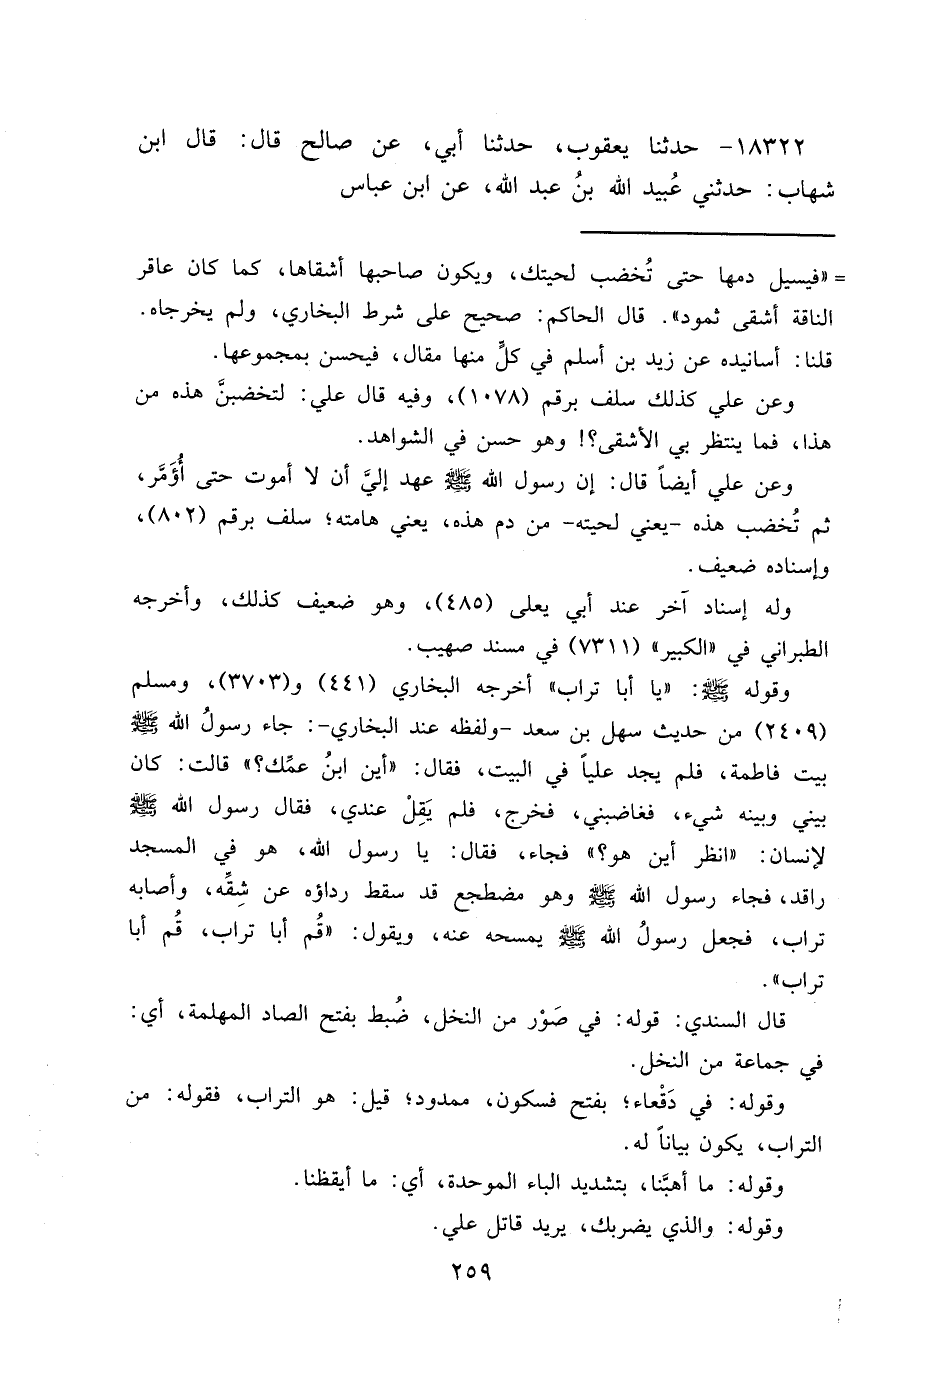 ١٨٣٢٢- حدثنا يعقوب، حدثنا أبي، عن صالح قال: قال ابن
شهاب: حدثني عُبيد الله بنُ عبد الله، عن ابن عباس
= «فيسيل دمها حتى تُخضب لحيتك، ويكون صاحبها أشقاها، كما كان عاقر
الناقة أشقى ثمود». قال الحاكم: صحيح على شرط البخاري، ولم يخرجاه.
قلنا: أسانيده عن زيد بن أسلم في كلٍّ منها مقال، فيحسن بمجموعها.
وعن علي كذلك سلف برقم (١٠٧٨)، وفيه قال علي: لتخضبنَّ هذه من
هذا، فما ينتظر بي الأشقى؟! وهو حسن في الشواهد.
وعن علي أيضاً قال: إن رسول الله ﷺ عهد إليَّ أن لا أموت حتى أُؤَمَّر،
ثم تُخضب هذه -يعني لحيته- من دم هذه، يعني هامته؛ سلف برقم (٨٠٢)،
وإسناده ضعيف.
وله إسناد آخر عند أبي يعلى (٤٨٥)، وهو ضعيف كذلك، وأخرجه
الطبراني في «الكبير» (٧٣١١) في مسند صهيب.
وقوله ﷺ: «يا أبا تراب» أخرجه البخاري (٤٤١) و(٣٧٠٣)، ومسلم
(٢٤٠٩) من حديث سهل بن سعد -ولفظه عند البخاري-: جاء رسولُ الله ﷺ
بيت فاطمة، فلم يجد علياً في البيت، فقال: «أين ابنُ عمِّك؟» قالت: كان
بيني وبينه شيء، فغاضبني، فخرج، فلم يَقِلْ عندي، فقال رسول الله ﷺ
لإنسان: «انظر أين هو؟» فجاء، فقال: يا رسول الله، هو في المسجد
راقد، فجاء رسول الله ﷺ وهو مضطجع قد سقط رداؤه عن شِقِّه، وأصابه
تراب، فجعل رسولُ الله ﷺ يمسحه عنه، ويقول: «قُم أبا تراب، قُم أبا
تراب».
قال السندي: قوله: في صَوْر من النخل، ضُبط بفتح الصاد المهملة، أي:
في جماعة من النخل.
وقوله: في دَقْعاء؛ بفتح فسكون، ممدود؛ قيل: هو التراب، فقوله: من
التراب، يكون بياناً له.
وقوله: ما أهبَّنا، بتشديد الباء الموحدة، أي: ما أيقظنا.
وقوله: والذي يضربك، يريد قاتل علي.
٢٥٩